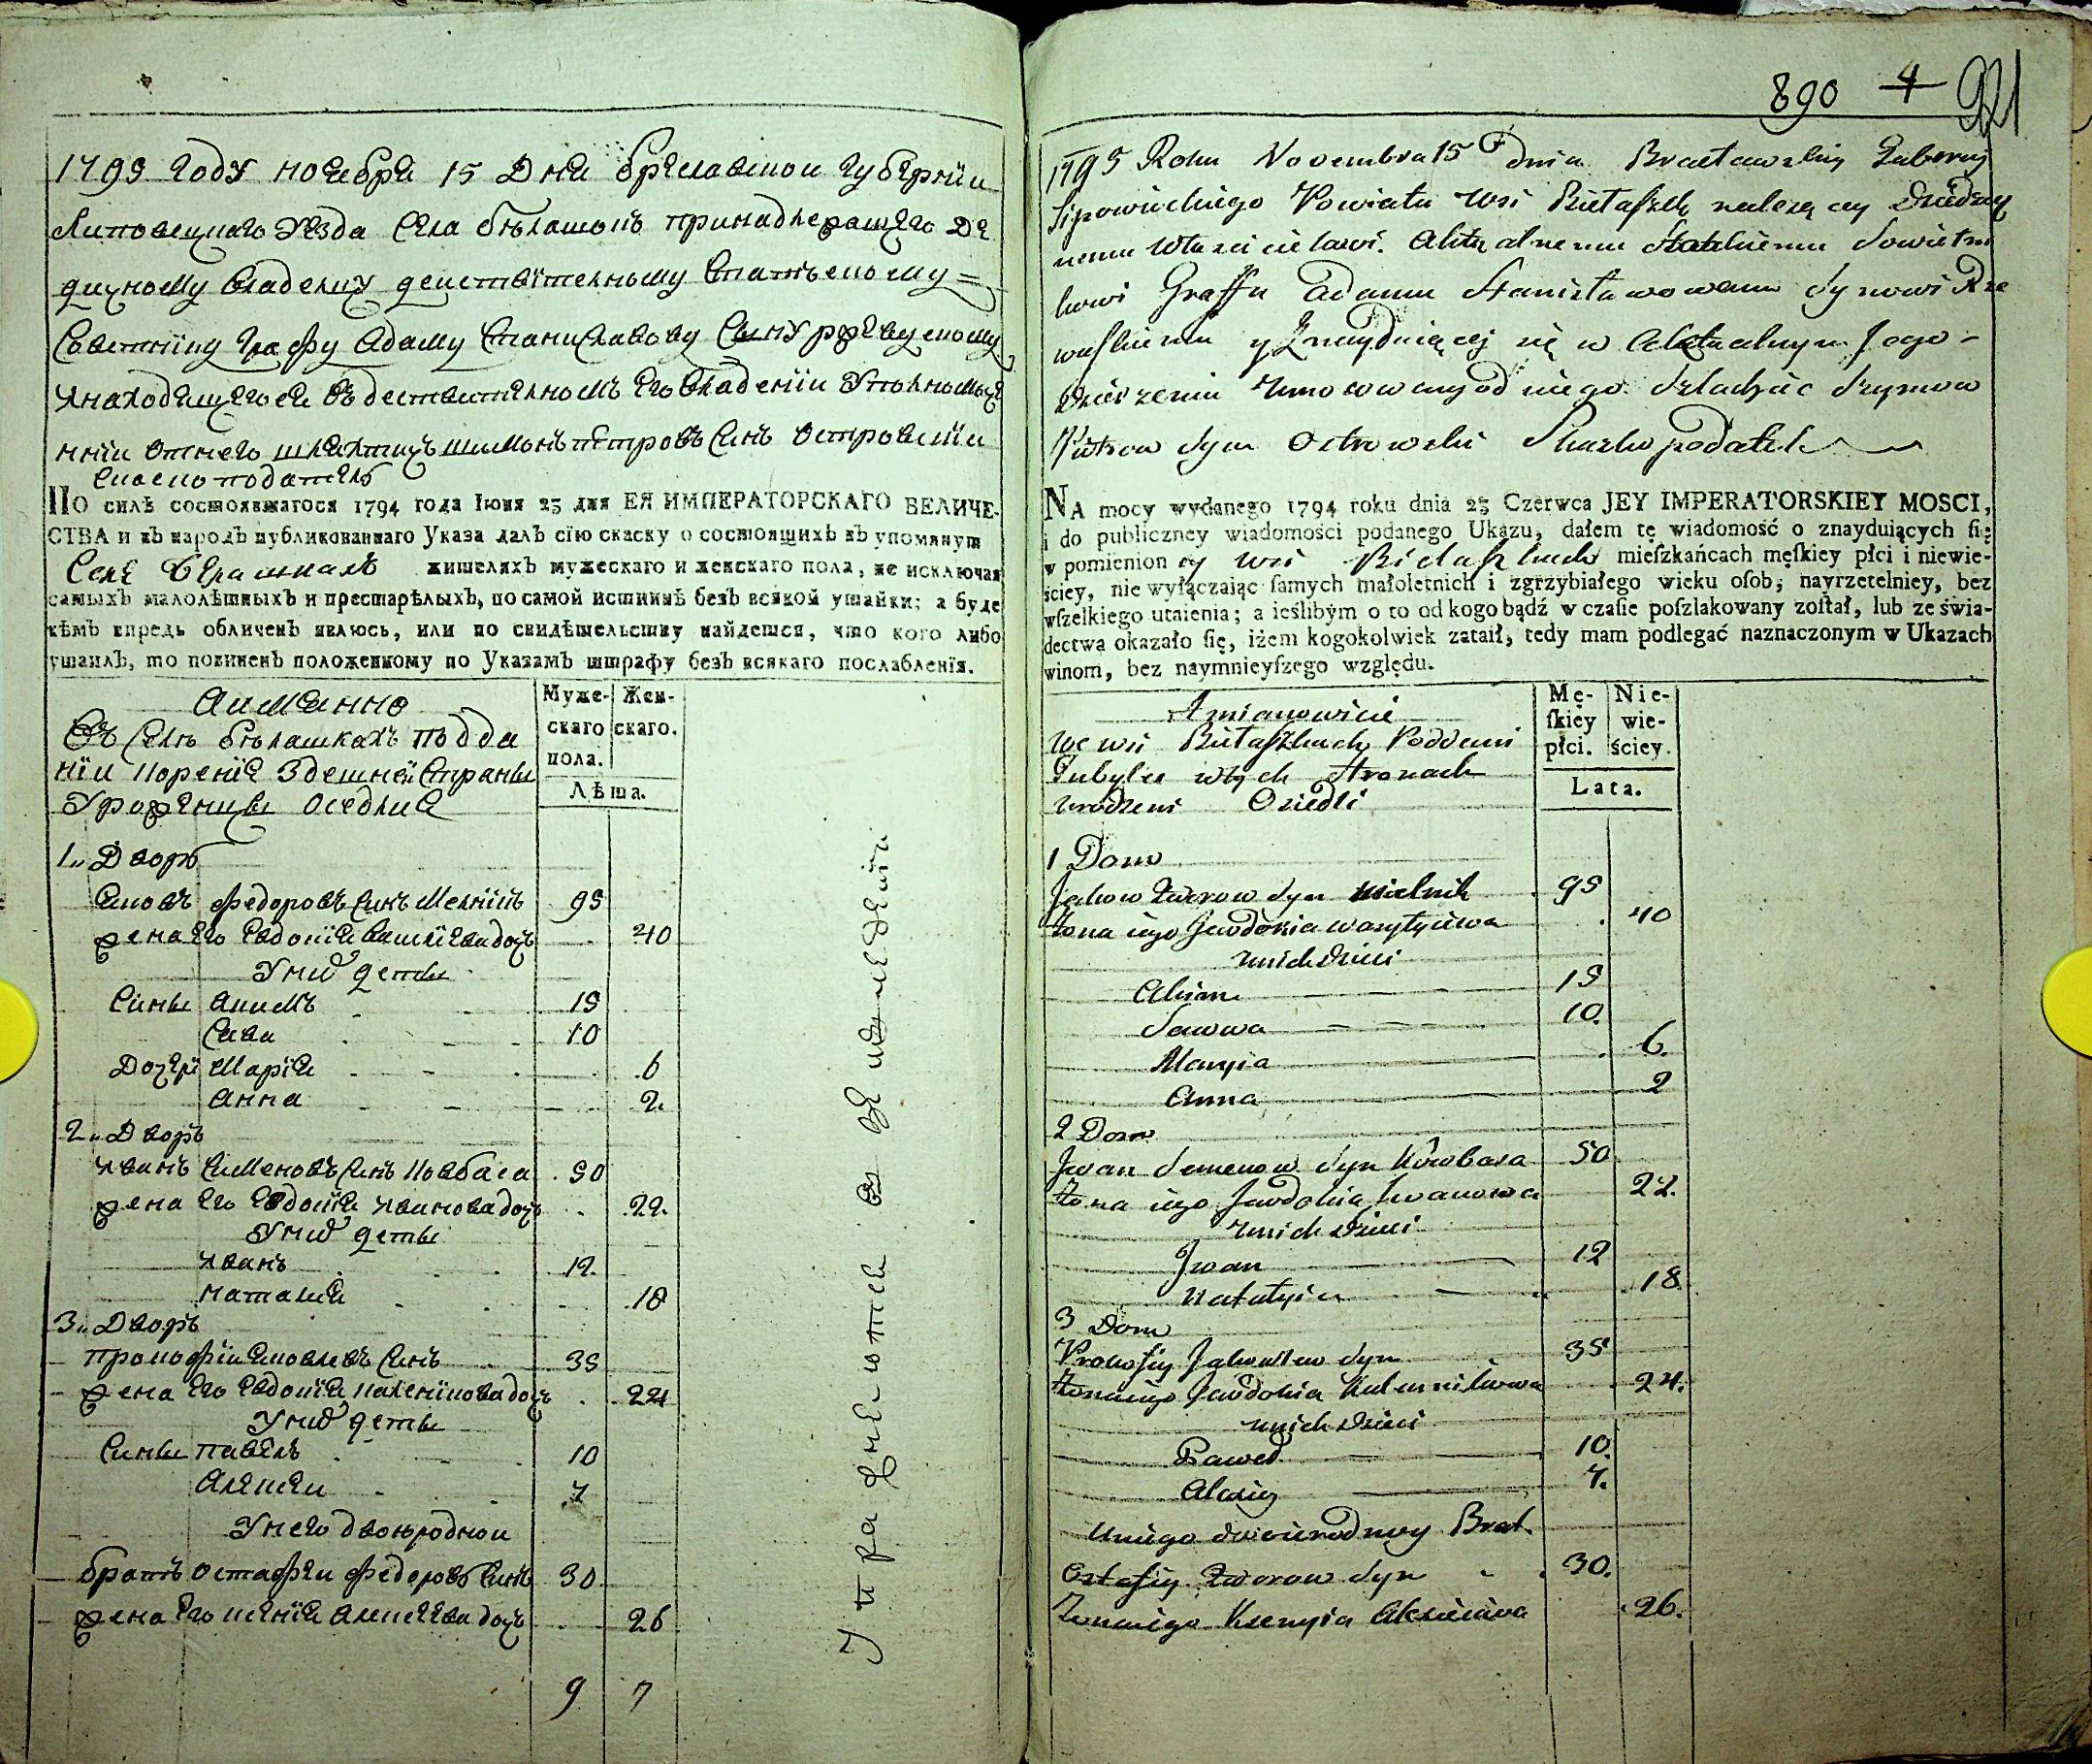 1795 году ноября 15 дня Брацлавской губернии
Липовецкаго уезда села Белашокъ принадлежащего де
дичному владелцу действителному статскому =
Советнику графу Адаму Станиславову сыну Ржевускому
и находящегося въ действителномъ его владении уполномоче
нний отнего шляхтичъ Шимонъ Петровъ синъ Островский
скаско податель
ПО силѣ состоявшагося 1794 года Іюня 23 дня ЕЯ ИМПЕРАТОРСКАГО ВЕЛИЧЕ-
СТВА и въ народъ публикованнаго Указа далъ сію скаску о состоящихъ въ упомянут
Селе Белашкахъ жителяхъ мужескаго и женскаго пола, не исключая
самыхъ малолѣтныхъ и престарѣлыхъ, по самой истиннѣ безъ всякой утайки; а буде
кѣмъ впредь обличенъ явлюсь, или по свидѣтельству найдется, что кого либо
утаилъ, то повиненъ положенному по Указамъ штрафу безъ всякаго послабленія.
Аимянно
Въ селе Белашкахъ подда
нии корение здешней страны
уроженцы оседлие
Муже-
скаго
пола.
Жен-
скаго.
Лѣта.
1. Дворъ
Яковъ Федоровъ синъ Мелникъ 95
жена его Евдокия Василиева доч 40
У них дети
сины Якимъ 15
Сава 10
дочери Мария 6
Анна 2.
2. Дворъ
Иванъ Семеновъ синъ Ковбаса 50
жена его Евдокия Иванова доч 22.
У них дети
Иванъ 12.
Наталия 18
3. Дворъ
Прокофий Яковлевъ синъ 35
жена его Евдокия Каленикова доч 24
У них дети
сины Павелъ 10
Алексей 7
У него двоюродной
братъ Остафей Федоровъ синъ 30
жена его Ксения Алексеева доч 26
9 7
890 4 921
1795 Roku Novembra 15 dnia Bracławskiey Gubernij
Lipowieckiego Powiatu wsi Biełaszek należącey Dziedzicz
nemu właścicielowi. Aktualnemu Statskiemu Sowietni
kowi Graffu Adamu Stanisławowemu synowi Rze
wuskiemu y znayduiącej się w Aktualnym Jego -
dzierżeniu Umocowany od niego. Szlachcic Szymon
Piotrow syn Ostrowski Skazko podatel
NA mocy wydanego 1794 roku dnia 23 Czerwca JEY IMPERATORSKIEY MOSCI,
i do publiczney wiadomości podanego Ukazu, dałem tę wiadomość o znayduiących ſię
w pomienioney wsi Biełaszkach mieſzkańcach męſkiey płci i niewie-
ściey, nie wyłączaiąc ſamych małoletnich i zgrzybiałego wieku oſob, nayrzetelniey, bez
wſzelkiego utaienia; a ieślibym o to od kogo bądź w czaſie poſzlakowany zoſtał, lub ze świa-
dectwa okazało ſię, iżem kogokolwiek zataił, tedy mam podlegać naznaczonym w Ukazach
winom, bez naymnieyſzego względu.
A mianowicie
we wsi Biełaszkach Poddani
Tubylce w tych Stronach
urodzeni Osiedli
Mę-
ſkiey
płci.
Nie-
wie-
ściey.
Lata.
1 Dom
Jakow Fedorow syn Mielnik 95
Żona iego Jawdokia Wasylyiewa 40
u nich dzieci
Akim 15
Sawwa 10.
Maryia 6.
Anna 2
2 Dom
Jwan Semenow syn Kowbasa 50
Żona iego Jawdokia Jwanowa 22.
u nich dzieci
Jwan 12
Natalyia 18
3 Dom
Prokofiy Jakowlew syn 35
Żona iego Jawdokia Kalennikowa 24.
u nich dzieci
Paweł 10.
Alexiey 7.
u niego dwoiurodnoy Brat
Ostafiy Fedorow syn 30.
Żona iego Ksenyia Alexieiewa 26.